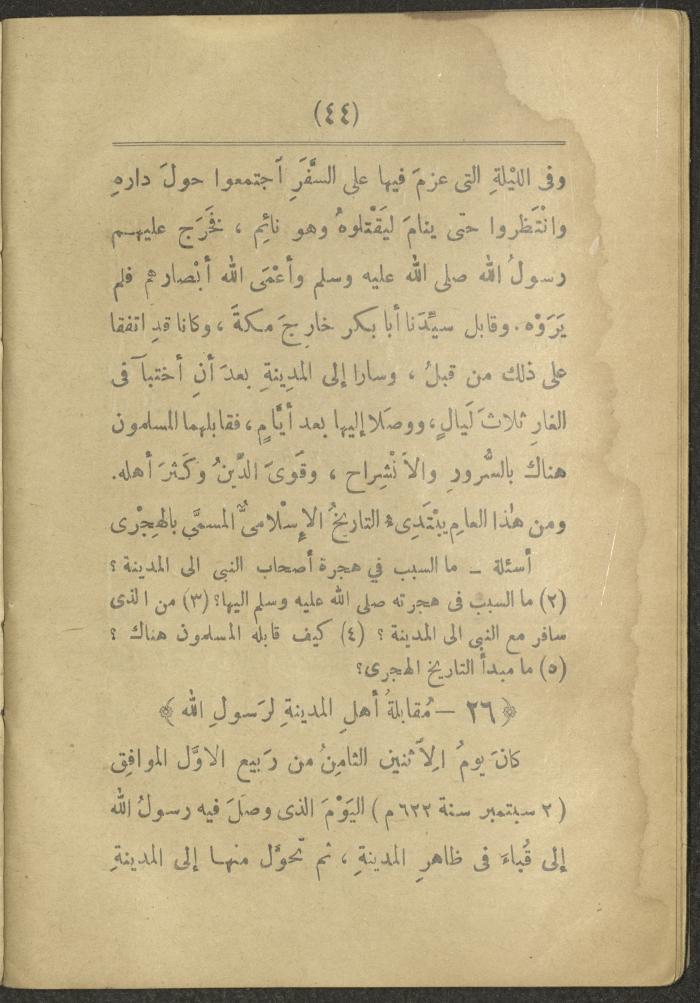 (٤٤)
وفى الليْلةِ التى عزمَ فيها على السَّفَرِ ٱجتمعوا حولَ دارهِ
وانْتَظروا حتى ينامَ ليَقْتلوهُ وهو نائِم ، فخَرَج عليهم
رسولُ الله صلى الله عليه وسلم وأعْمَى الله أبْصارهم فلم
يَرَوْه. وقابل سيِّدَنا أبا بكر خارِجَ مكةَ ، وكانا قدِ اتفقا
على ذلك من قبلُ ، وسارا إلى المدِينةِ بعدَ أنِ ٱختبآ فى
الغارِ ثلاثَ لَيالٍ، ووصَلا إليها بعد أيَّامٍ، فقابلهما المسلمون
هناك بالسُّرورِ والاَنْشِراح ، وقَوىَ الدِّينُ وكَثرَ أهله.
ومن هٰذا العامِ يبْتَدِىء التاريخُ الإِسْلامىُّ المسمَّى بالهِجْرى
أسئلة ـ ما السبب في هجرة أصحاب النبى الى المدينة ؟
(٢) ما السبب فى هجرته صلى الله عليه وسلم اليها؟ (٣) من الذى
سافر مع النبى الى المدينة ؟ (٤) كيف قابله المسلمون هناك ؟
(٥) ما مبدأ التاريخ الهجرى؟
﴿ ٢٦ — مُقابلةُ أهلِ المدينةِ لرَسولِ الله ﴾
كانَ يومُ الِٱثنين الثامِنُ من رَبيع الاوَّل الموافِق
( ٢ سبتمبر سنة ٦٢٢ م ) اليَوْمَ الذى وصَلَ فيه رسولُ الله
إلى قُباءَ فى ظاهرِ المدينةِ ، ثم تحوَّل منها إلى المدينةِ